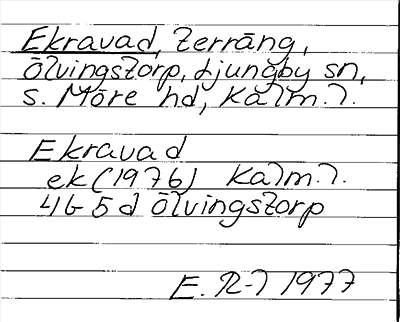 Ekravad, terräng,
Ölvingstorp, Ljungby sn,
S. Möre hd, Kalm. l.
Ekravad
ek (1976) Kalm. l.
4G 5d Ölvingstorp
E. R-l 1977